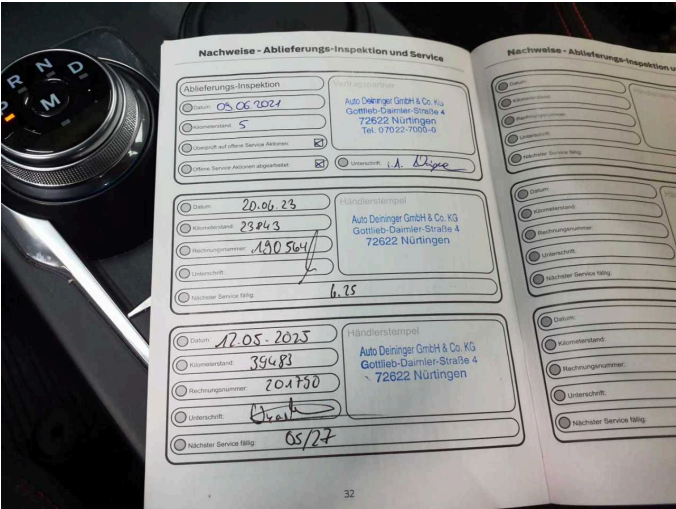 R N D
M
Nachweise - Ablieferungs-Inspektion und Service
Ablieferungs-Inspektion
Datum: 09.06.2021
Kilometerstand: 5
Überprüft auf offene Service Aktionen:
Offene Service Aktionen abgearbeitet:
Vertragspartner
Auto Deininger GmbH & Co. KG
Gottlieb-Daimler-Straße 4
72622 Nürtingen
Tel. 07022-7000-0
Unterschrift:
Datum: 20.06.23
Kilometerstand: 23843
Rechnungsnummer: 190564
Unterschrift:
Nächster Service fällig: 6.25
Händlerstempel
Auto Deininger GmbH & Co. KG
Gottlieb-Daimler-Straße 4
72622 Nürtingen
Datum: 12.05.2025
Kilometerstand: 39483
Rechnungsnummer: 201790
Unterschrift:
Nächster Service fällig: 05/27
Händlerstempel
Auto Deininger GmbH & Co. KG
Gottlieb-Daimler-Straße 4
72622 Nürtingen
32
Nachweise - Ablieferungs-Inspektion u
Datum:
Kilometerstand:
Rechnungsnummer:
Unterschrift:
Nächster Service fällig:
Datum:
Kilometerstand:
Rechnungsnummer:
Unterschrift:
Nächster Service fällig:
Datum:
Kilometerstand:
Rechnungsnummer:
Unterschrift:
Nächster Service fällig: